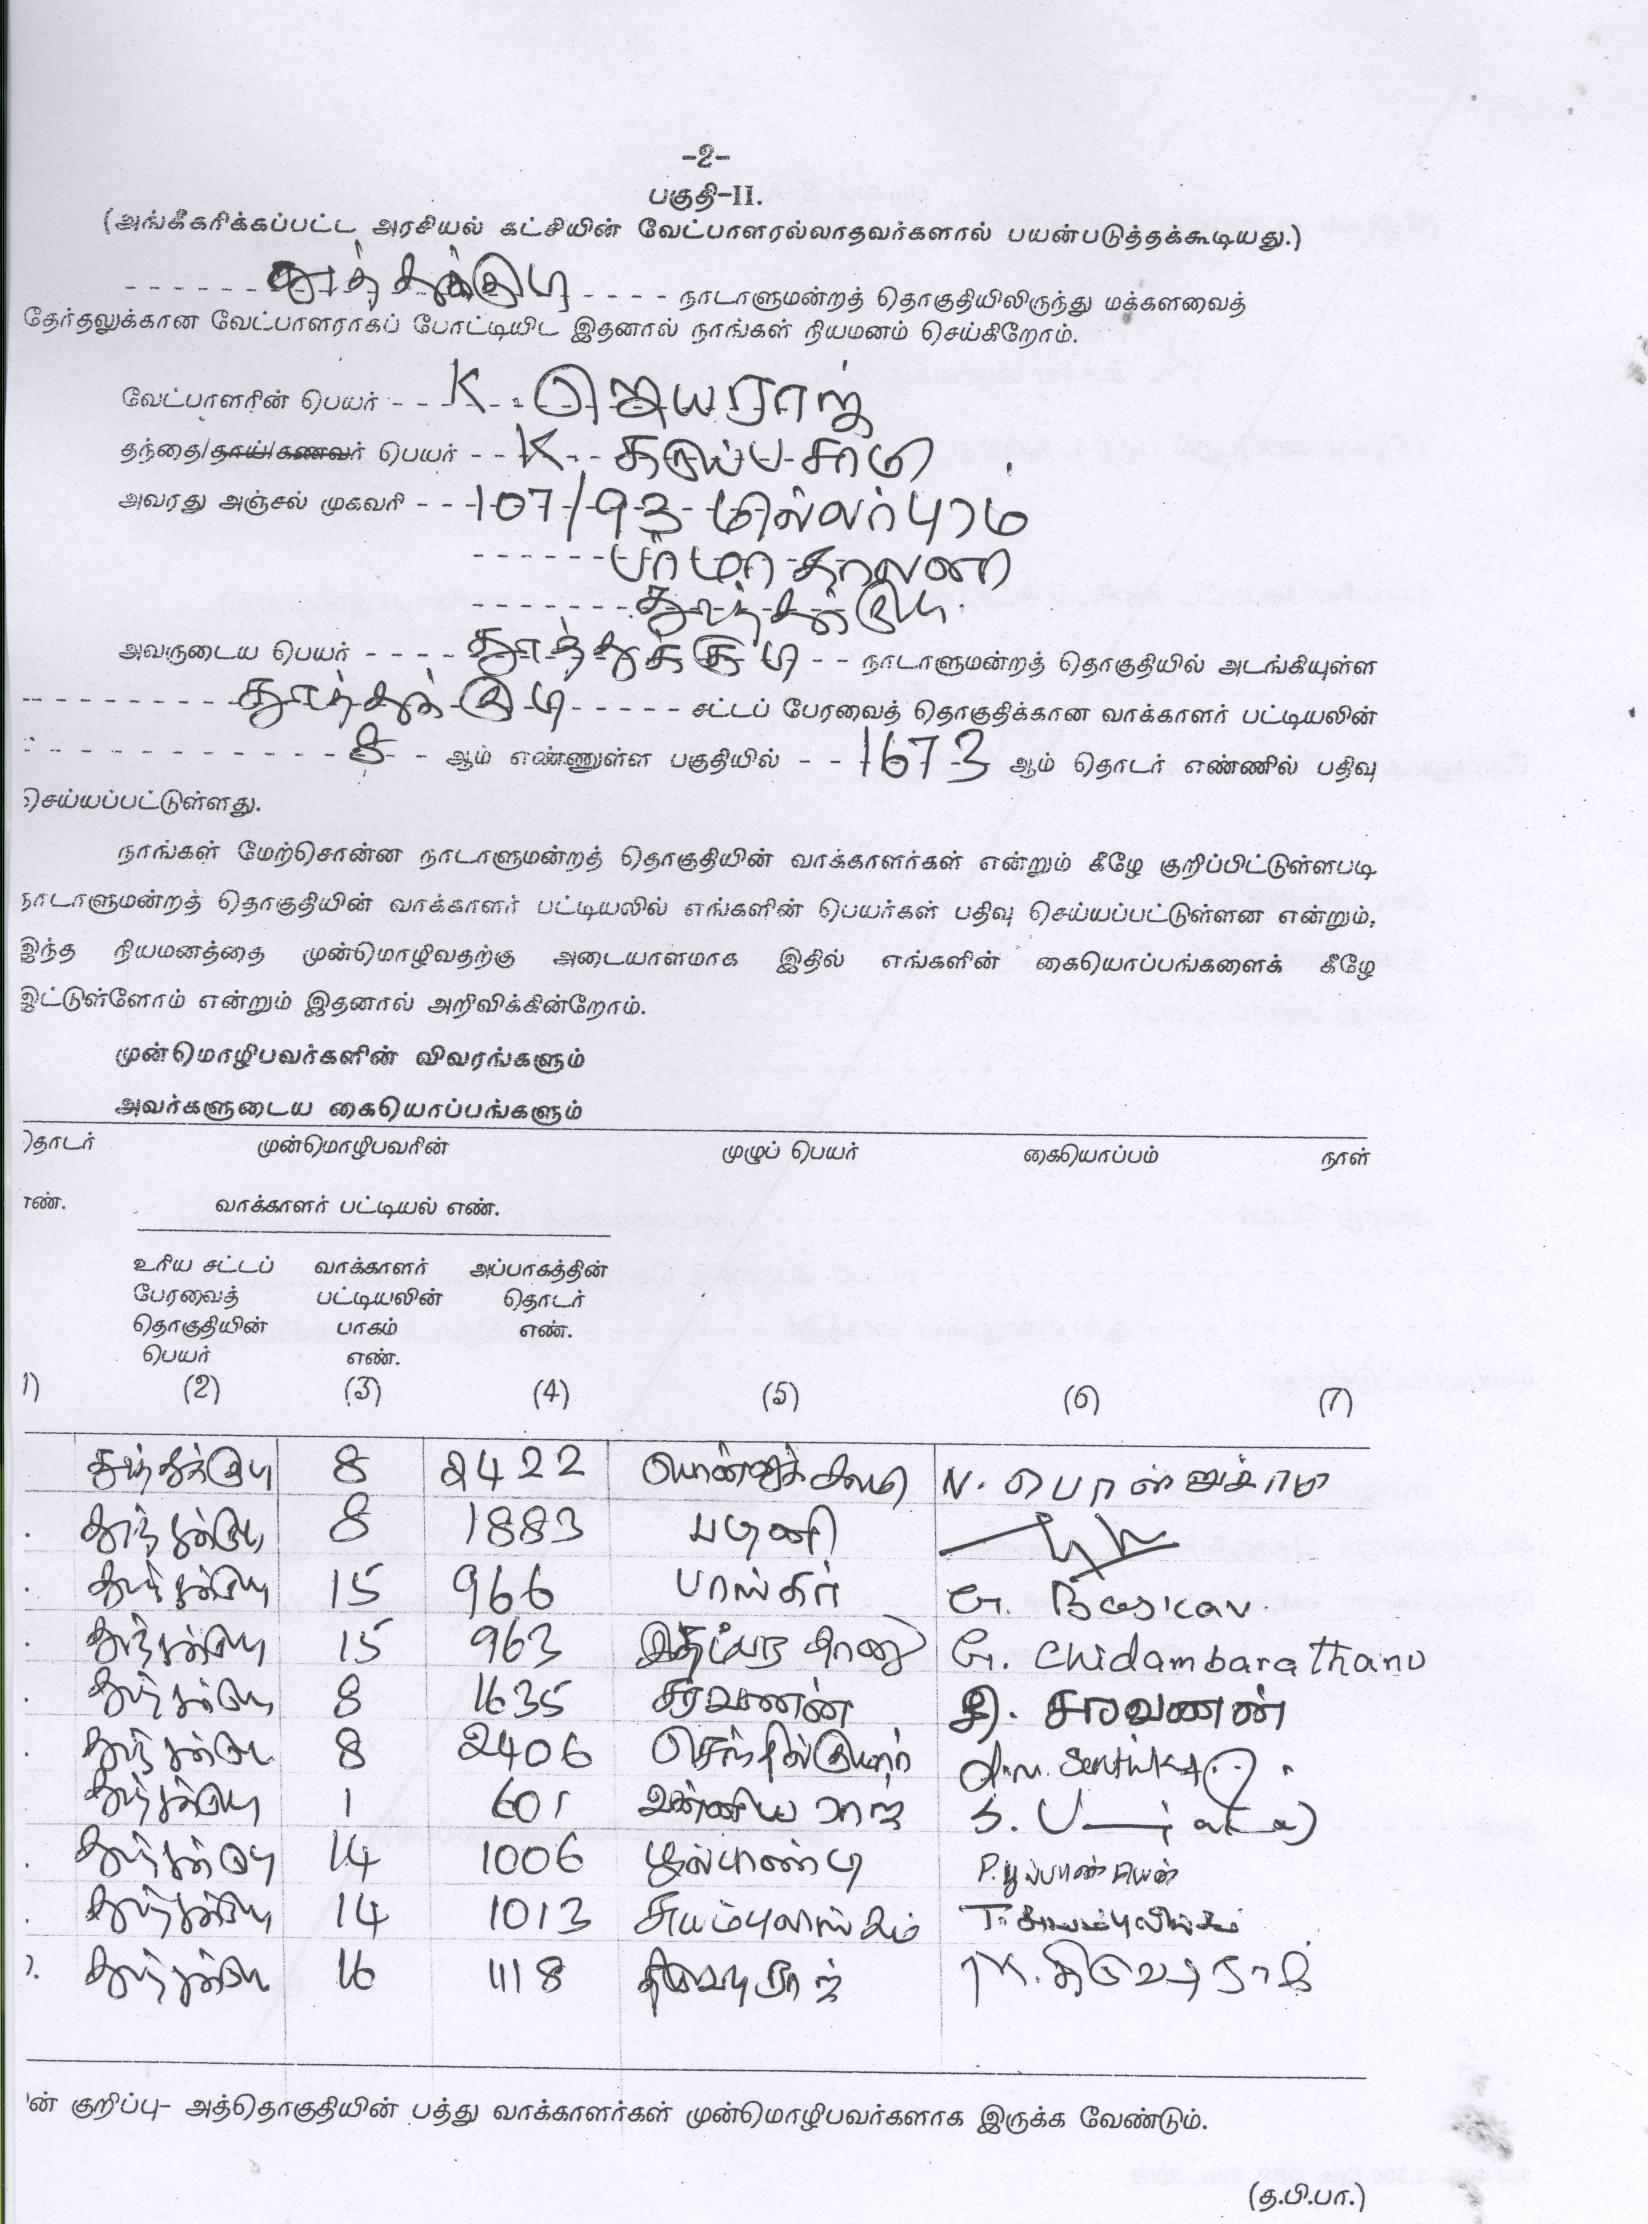 -2-
பகுதி-II.
(அங்கீகரிக்கப்பட்ட அரசியல் கட்சியின் வேட்பாளரல்லாதவர்களால் பயன்படுத்தக்கூடியது.)
தூத்துக்குடி நாடாளுமன்றத் தொகுதியிலிருந்து மக்களவைத்
தேர்தலுக்கான வேட்பாளராகப் போட்டியிட இதனால் நாங்கள் நியமனம் செய்கிறோம்.
வேட்பாளரின் பெயர் - - K. ஜெயராஜ்
தந்தை/தாய்/கணவர் பெயர் - - K. கருப்பசாமி
அவரது அஞ்சல் முகவரி - - 107/93 மில்லர்புரம்
பர்மா காலனி
தூத்துக்குடி.
அவருடைய பெயர் - - - - தூத்துக்குடி - - நாடாளுமன்றத் தொகுதியில் அடங்கியுள்ள
தூத்துக்குடி - - - - - சட்டப் பேரவைத் தொகுதிக்கான வாக்காளர் பட்டியலின்
8 - - ஆம் எண்ணுள்ள பகுதியில் - - 1673 ஆம் தொடர் எண்ணில் பதிவு
செய்யப்பட்டுள்ளது.
நாங்கள் மேற்சொன்ன நாடாளுமன்றத் தொகுதியின் வாக்காளர்கள் என்றும் கீழே குறிப்பிட்டுள்ளபடி
நாடாளுமன்றத் தொகுதியின் வாக்காளர் பட்டியலில் எங்களின் பெயர்கள் பதிவு செய்யப்பட்டுள்ளன என்றும்,
இந்த நியமனத்தை முன்மொழிவதற்கு அடையாளமாக இதில் எங்களின் கையொப்பங்களைக் கீழே
இட்டுள்ளோம் என்றும் இதனால் அறிவிக்கின்றோம்.
முன்மொழிபவர்களின் விவரங்களும்
அவர்களுடைய கையொப்பங்களும்
தொடர் முன்மொழிபவரின் முழுப் பெயர் கையொப்பம் நாள்
எண். வாக்காளர் பட்டியல் எண்.
உரிய சட்டப் வாக்காளர் அப்பாகத்தின்
பேரவைத் பட்டியலின் தொடர்
தொகுதியின் பாகம் எண்.
பெயர் எண்.
1) (2) (3) (4) (5) (6) (7)
தூத்துக்குடி 8 2422 பொன்னுச்சாமி N. பொன்னுச்சாமி
தூத்துக்குடி 8 1883 பழனி
தூத்துக்குடி 15 966 பாஸ்கர் G. Bascar.
தூத்துக்குடி 15 963 சிதம்பரதாணு G. Chidambarathanu
தூத்துக்குடி 8 1635 சரவணன் தி. சரவணன்
தூத்துக்குடி 8 2406 செந்தில்குமார்
தூத்துக்குடி 1 601 உன்னியராஜ்
தூத்துக்குடி 14 1006 பூல்பாண்டி
தூத்துக்குடி 14 1013 சுயம்புலிங்கம் T. சுயம்புலிங்கம்
தூத்துக்குடி 16 1118
ன் குறிப்பு- அத்தொகுதியின் பத்து வாக்காளர்கள் முன்மொழிபவர்களாக இருக்க வேண்டும்.
(த.பி.பா.)